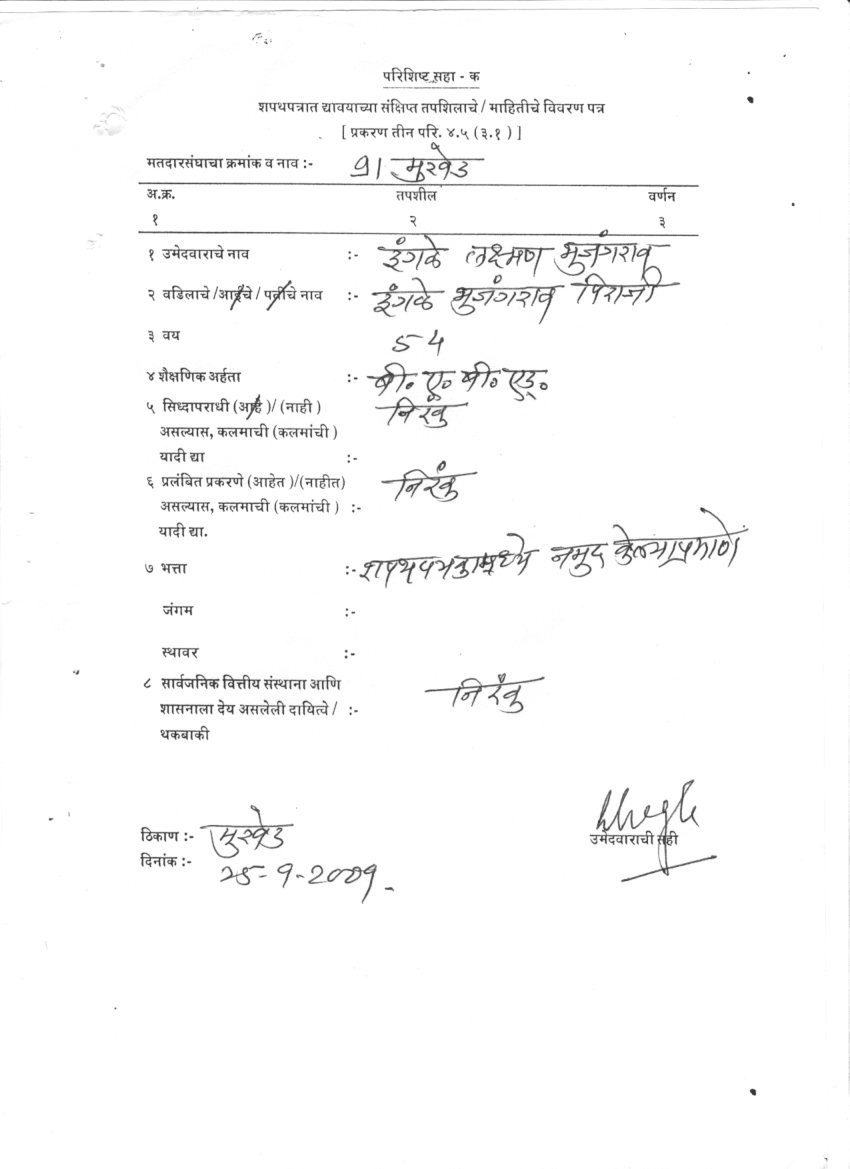 परिशिष्ट सहा - क
शपथपत्रात द्यावयाच्या संक्षिप्त तपशिलाचे / माहितीचे विवरण पत्र
[ प्रकरण तीन परि. ४.५ (३.१ ) ]
मतदारसंघाचा क्रमांक व नाव :- 91 मुखेड
अ.क्र. तपशील वर्णन
१ २ ३
१ उमेदवाराचे नाव :- इंगळे लक्ष्मण भुजंगराव
२ वडिलाचे /आईचे / पतीचे नाव :- इंगळे भुजंगराव पिराजी
३ वय 54
४ शैक्षणिक अर्हता :- बी. ए. बी. एड्.
५ सिध्दापराधी (आहे )/ (नाही ) निरंक
असल्यास, कलमाची (कलमांची )
यादी द्या :-
६ प्रलंबित प्रकरणे (आहेत )/(नाहीत) निरंक
असल्यास, कलमाची (कलमांची ) :-
यादी द्या.
७ भत्ता :- शपथपत्रकामध्ये नमुद केल्याप्रमाणे
जंगम :-
स्थावर :-
८ सार्वजनिक वित्तीय संस्थाना आणि निरंक
शासनाला देय असलेली दायित्वे / :-
थकबाकी
ठिकाण :- मुखेड
उमेदवाराची सही
दिनांक :- 25-9-2009.